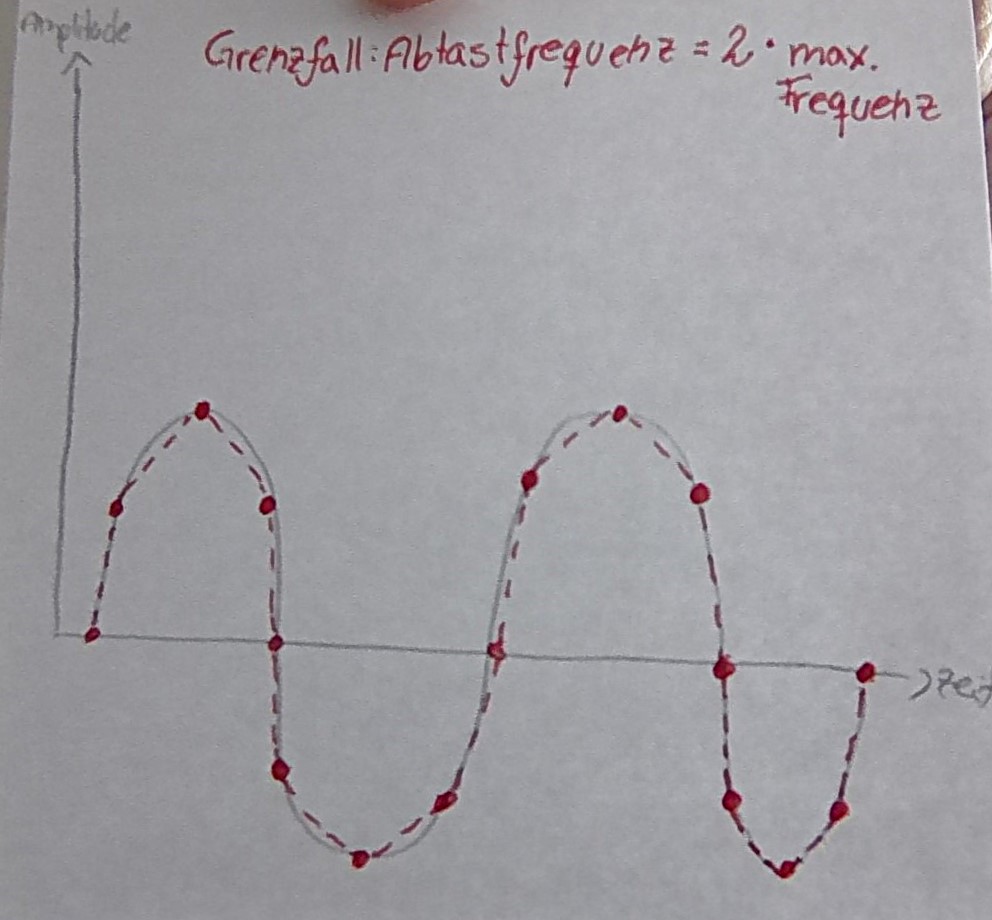 Amplitude
Grenzfall: Abtastfrequenz = 2 · max.
Frequenz
Zeit